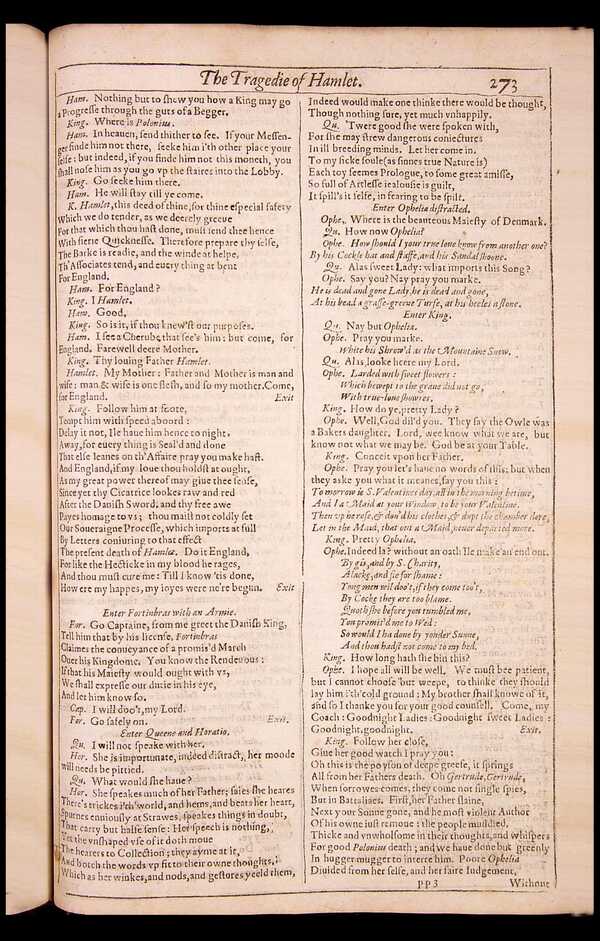 The Tragedie of Hamlet. 273
Ham. Nothing but to shew you how a King may go
a Progresse through the guts of a Begger.
King. Where is Polonius.
Ham. In heauen, send thither to see. If your Messen-
ger finde him not there, seeke him i'th other place your
selfe: but indeed, if you finde him not this moneth, you
shall nose him as you go vp the staires into the Lobby.
King. Go seeke him there.
Ham. He will stay till ye come.
K. Hamlet, this deed of thine, for thine especial safety
Which we do tender, as we deerely greeue
For that which thou hast done, must send thee hence
With fierie Quicknesse. Therefore prepare thy selfe,
The Barke is readie, and the winde at helpe,
Th'Associates tend, and euery thing at bent
For England.
Ham. For England?
King. I Hamlet.
Ham. Good.
King. So is it, if thou knew'st our purposes.
Ham. I see a Cherube that see's him: but come, for
England. Farewell deere Mother.
King. Thy louing Father Hamlet.
Hamlet. My Mother: Father and Mother is man and
wife: man & wife is one flesh, and so my mother. Come,
for England. Exit
King. Follow him at foote,
Tempt him with speed aboord:
Delay it not, Ile haue him hence to night.
Away, for euery thing is Seal'd and done
That else leanes on th'Affaire pray you make hast.
And England, if my loue thou holdst at ought,
As my great power thereof may giue thee sense,
Since yet thy Cicatrice lookes raw and red
After the Danish Sword, and thy free awe
Payes homage to vs; thou maist not coldly set
Our Soueraigne Processe, which imports at full
By Letters coniuring to that effect
The present death of Hamlet. Do it England,
For like the Hecticke in my blood he rages,
And thou must cure me: Till I know 'tis done,
How ere my happes, my ioyes were ne're begun. Exit
Enter Fortinbras with an Armie.
For. Go Captaine, from me greet the Danish King,
Tell him that by his license, Fortinbras
Claimes the conueyance of a promis'd March
Ouer his Kingdome. You know the Rendeuous:
If that his Maiesty would ought with vs,
We shall expresse our dutie in his eye,
And let him know so.
Cap. I will doo't, my Lord.
For. Go safely on. Exit.
Enter Queene and Horatio.
Qu. I will not speake with her.
Hor. She is importunate, indeed distract, her moode
will needs be pittied.
Qu. What would she haue?
Hor. She speakes much of her Father; saies she heares
There's trickes i'th'world, and hems, and beats her heart,
Spurnes enuiously at Strawes, speakes things in doubt,
That carry but halfe sense: Her speech is nothing,
Yet the vnshaped vse of it doth moue
The hearers to Collection; they ayme at it,
And botch the words vp fit to their owne thoughts,
Which as her winkes, and nods, and gestures yeeld them,
Indeed would make one thinke there would be thought,
Though nothing sure, yet much vnhappily.
Qu. 'Twere good she were spoken with,
For she may strew dangerous coniectures
In ill breeding minds. Let her come in.
To my sicke soule (as sinnes true Nature is)
Each toy seemes Prologue, to some great amisse,
So full of Artlesse iealousie is guilt,
It spill's it selfe, in fearing to be spilt.
Enter Ophelia distracted.
Ophe. Where is the beauteous Maiesty of Denmark.
Qu. How now Ophelia?
Ophe. How should I your true loue know from another one?
By his Cockle hat and staffe, and his Sandal shoone.
Qu. Alas sweet Lady: what imports this Song?
Ophe. Say you? Nay pray you marke.
He is dead and gone Lady, he is dead and gone,
At his head a grasse-greene Turfe, at his heeles a stone.
Enter King.
Qu. Nay but Ophelia.
Ophe. Pray you marke.
White his Shrow'd as the Mountaine Snow.
Qu. Alas, looke heere my Lord.
Ophe. Larded with sweet flowers:
Which bewept to the graue did not go,
With true-loue showres.
King. How do ye, pretty Lady?
Ophe. Well, God dil'd you. They say the Owle was
a Bakers daughter. Lord, wee know what we are, but
know not what we may be. God be at your Table.
King. Conceit vpon her Father.
Ophe. Pray you let's haue no words of this: but when
they aske you what it meanes, say you this:
To morrow is S. Valentines day, all in the morning betime,
And I a Maid at your Window, to be your Valentine.
Then vp he rose, & don'd his clothes, & dupt the chamber dore,
Let in the Maid, that out a Maid, neuer departed more.
King. Pretty Ophelia.
Ophe. Indeed la? without an oath Ile make an end ont.
By gis, and by S. Charity,
Alacke, and fie for shame:
Yong men wil doo't, if they come too't,
By Cocke they are too blame.
Quoth she before you tumbled me,
You promis'd me to Wed:
So would I ha done by yonder Sunne,
And thou hadst not come to my bed.
King. How long hath she bin this?
Ophe. I hope all will be well. We must bee patient,
but I cannot choose but weepe, to thinke they should
lay him i'th'cold ground: My brother shall knowe of it,
and so I thanke you for your good counsell. Come, my
Coach: Goodnight Ladies: Goodnight sweet Ladies:
Goodnight, goodnight. Exit.
King. Follow her close,
Giue her good watch I pray you:
Oh this is the poyson of deepe greefe, it springs
All from her Fathers death. Oh Gertrude, Gertrude,
When sorrowes comes, they come not single spies,
But in Battaliaes. First, her Father slaine,
Next your Sonne gone, and he most violent Author
Of his owne iust remoue: the people muddied,
Thicke and vnwholsome in their thoughts, and whispers
For good Polonius death; and we haue done but greenly
In hugger mugger to interre him. Poore Ophelia
Diuided from her selfe, and her faire Iudgement,
pp 3 Without